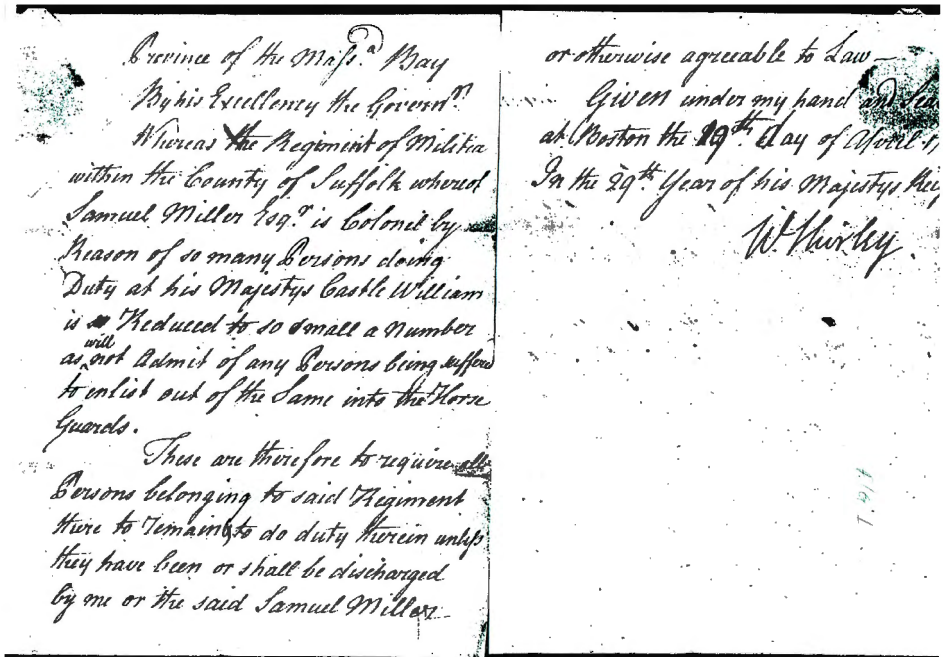 Province of the Massa Bay
By his Excellency the Governr.
Whereas the Regiment of Militia
within the County of Suffolk whereof
Samuel Miller Esqr is Colonel by
Reason of so many Persons doing
Duty at his Majestys Castle William
is Reduced to so small a Number
as will not Admit of any Persons being suffered
to enlist out of the Same into the Horse
Guards.
These are therefore to require all
Persons belonging to said Regiment
there to remain, to do duty therein unless
they have been or shall be discharged
by me or the said Samuel Miller
or otherwise agreeable to Law —
Given under my hand and Sea
at Boston the 19th day of April 17
In the 29th Year of his Majestys Rei
W Shirley.